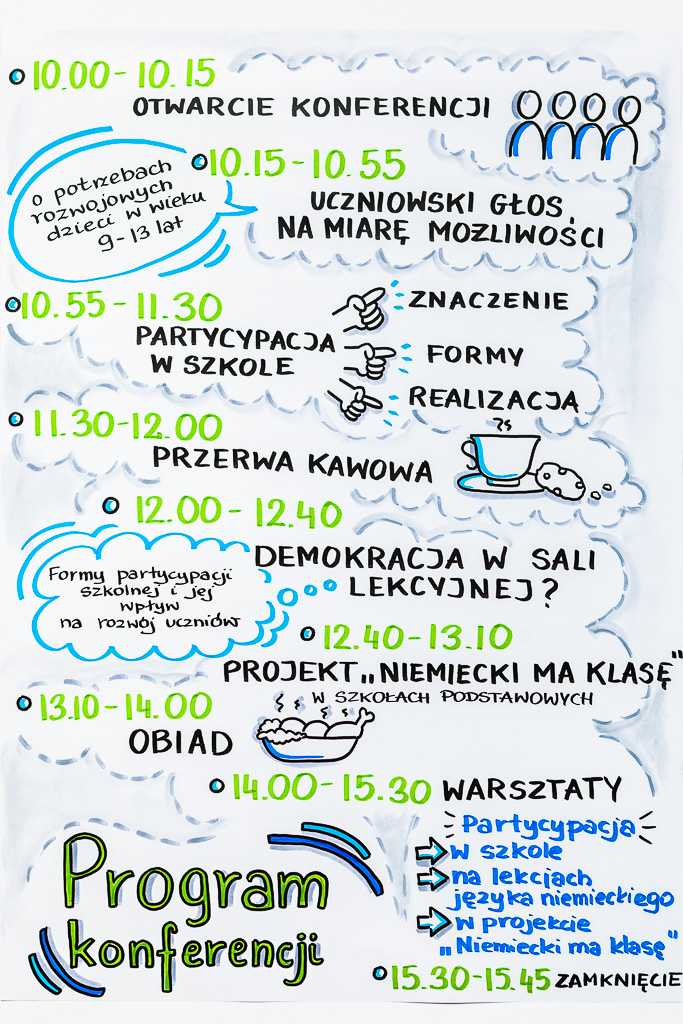 10.00 - 10.15
OTWARCIE KONFERENCJI
10.15 - 10.55
o potrzebach
rozwojowych
dzieci w wieku
9-13 lat
UCZNIOWSKI GŁOS
NA MIARĘ MOŻLIWOŚCI
10.55 - 11.30
PARTYCYPACJA
W SZKOLE
ZNACZENIE
FORMY
REALIZACJA
11.30 - 12.00
PRZERWA KAWOWA
12.00 - 12.40
DEMOKRACJA W SALI
LEKCYJNEJ?
Formy partycypacji
szkolnej i jej
wpływ
na rozwój uczniów
12.40 - 13.10
PROJEKT „NIEMIECKI MA KLASĘ"
W SZKOŁACH PODSTAWOWYCH
13.10 - 14.00
OBIAD
14.00 - 15.30 WARSZTATY
Partycypacja
w szkole
na lekcjach
języka niemieckiego
w projekcie
„Niemiecki ma klasę"
15.30 - 15.45 ZAMKNIĘCIE
Program
konferencji